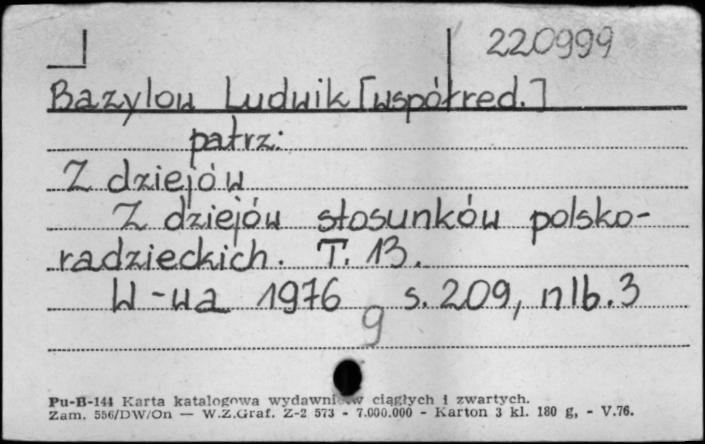 220999
Bazylow Ludwik [współred.]
patrz:
Z dziejów
Z dziejów stosunków polsko-
radzieckich. T. 13.
W-wa 1976 s. 209, nlb. 3
g
Pu-B-144 Karta katalogowa wydawnictw ciągłych i zwartych.
Zam. 556/DW/On — W.Z.Graf. Z-2 573 - 7.000.000 - Karton 3 kl. 180 g, - V.76.